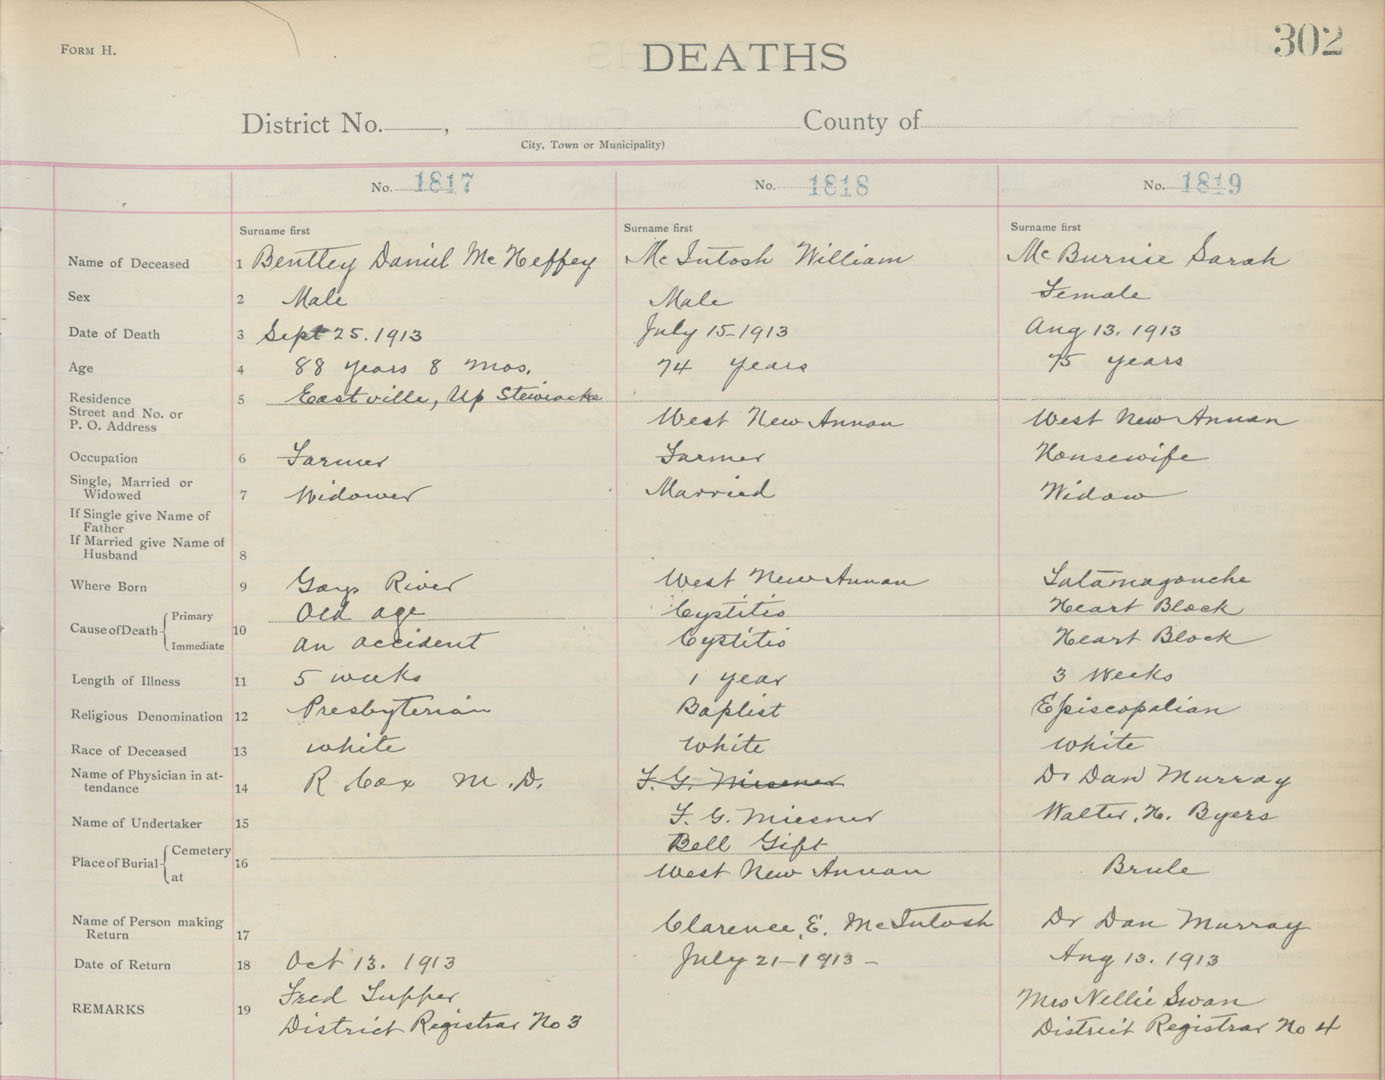 FORM H.
DEATHS
302
District No. , County of
City, Town or Municipality)
No. 1817 No. 1818 No. 1819
Surname first Surname first Surname first
Name of Deceased 1 Bentley Daniel McHeffey McIntosh William McBurnie Sarah
Sex 2 Male Male Female
Date of Death 3 Sept 25. 1913 July 15-1913 Aug 13. 1913
Age 4 88 years 8 mos. 74 years 75 years
Residence 5 Eastville, Up Stewiacke
Street and No. or
P. O. Address West New Annan West New Annan
Occupation 6 Farmer Farmer Housewife
Single, Married or
Widowed 7 Widower Married Widow
If Single give Name of
Father
If Married give Name of
Husband 8
Where Born 9 Gays River West New Annan Tatamagouche
Cause of Death Primary Old age Cystitis Heart Block
10 Immediate An accident Cystitis Heart Block
Length of Illness 11 5 weeks 1 year 3 Weeks
Religious Denomination 12 Presbyterian Baptist Episcopalian
Race of Deceased 13 white White White
Name of Physician in at-
tendance 14 R Cox M.D. F. G. Miesner Dr Dan Murray
Name of Undertaker 15 F. G. Miesner Walter. H. Byers
Place of Burial Cemetery Bell Gift
16 at West New Annan Brule
Name of Person making
Return 17 Clarence. E. McIntosh Dr Dan Murray
Date of Return 18 Oct 13. 1913 July 21-1913 - Aug 13. 1913
REMARKS 19 Fred Tupper Mrs Nellie Swan
District Registrar No 3 District Registrar No 4